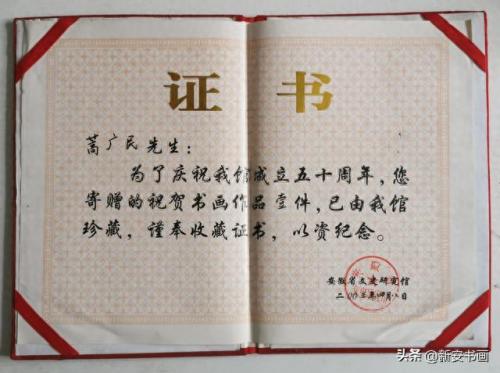 证书
蒿广民先生：
为了庆祝我馆成立五十周年，您
寄赠的祝贺书画作品壹件，已由我馆
珍藏，谨奉收藏证书，以资纪念。
安徽省文史研究馆
头条 @新安书画